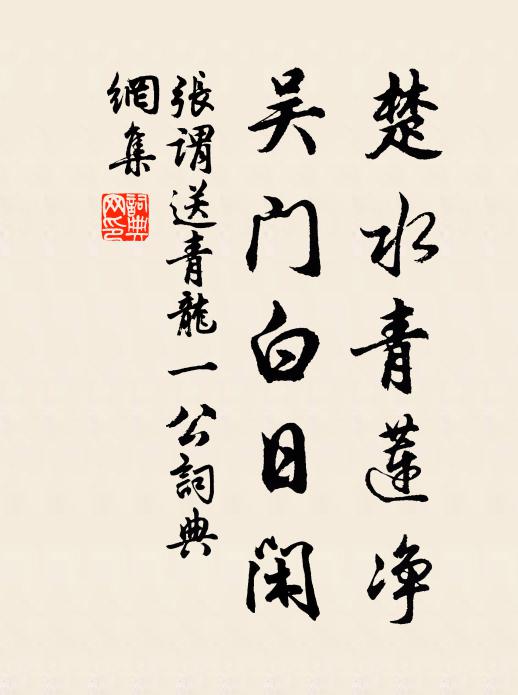 楚水青蓮净
吴门白日闲
張謂送青龍一公詞典
網集
詞典
网印